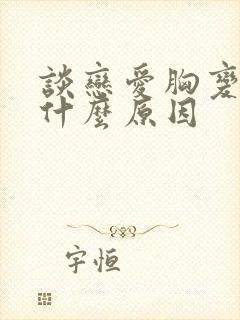 談戀愛胸變
什麼原因
宇恒